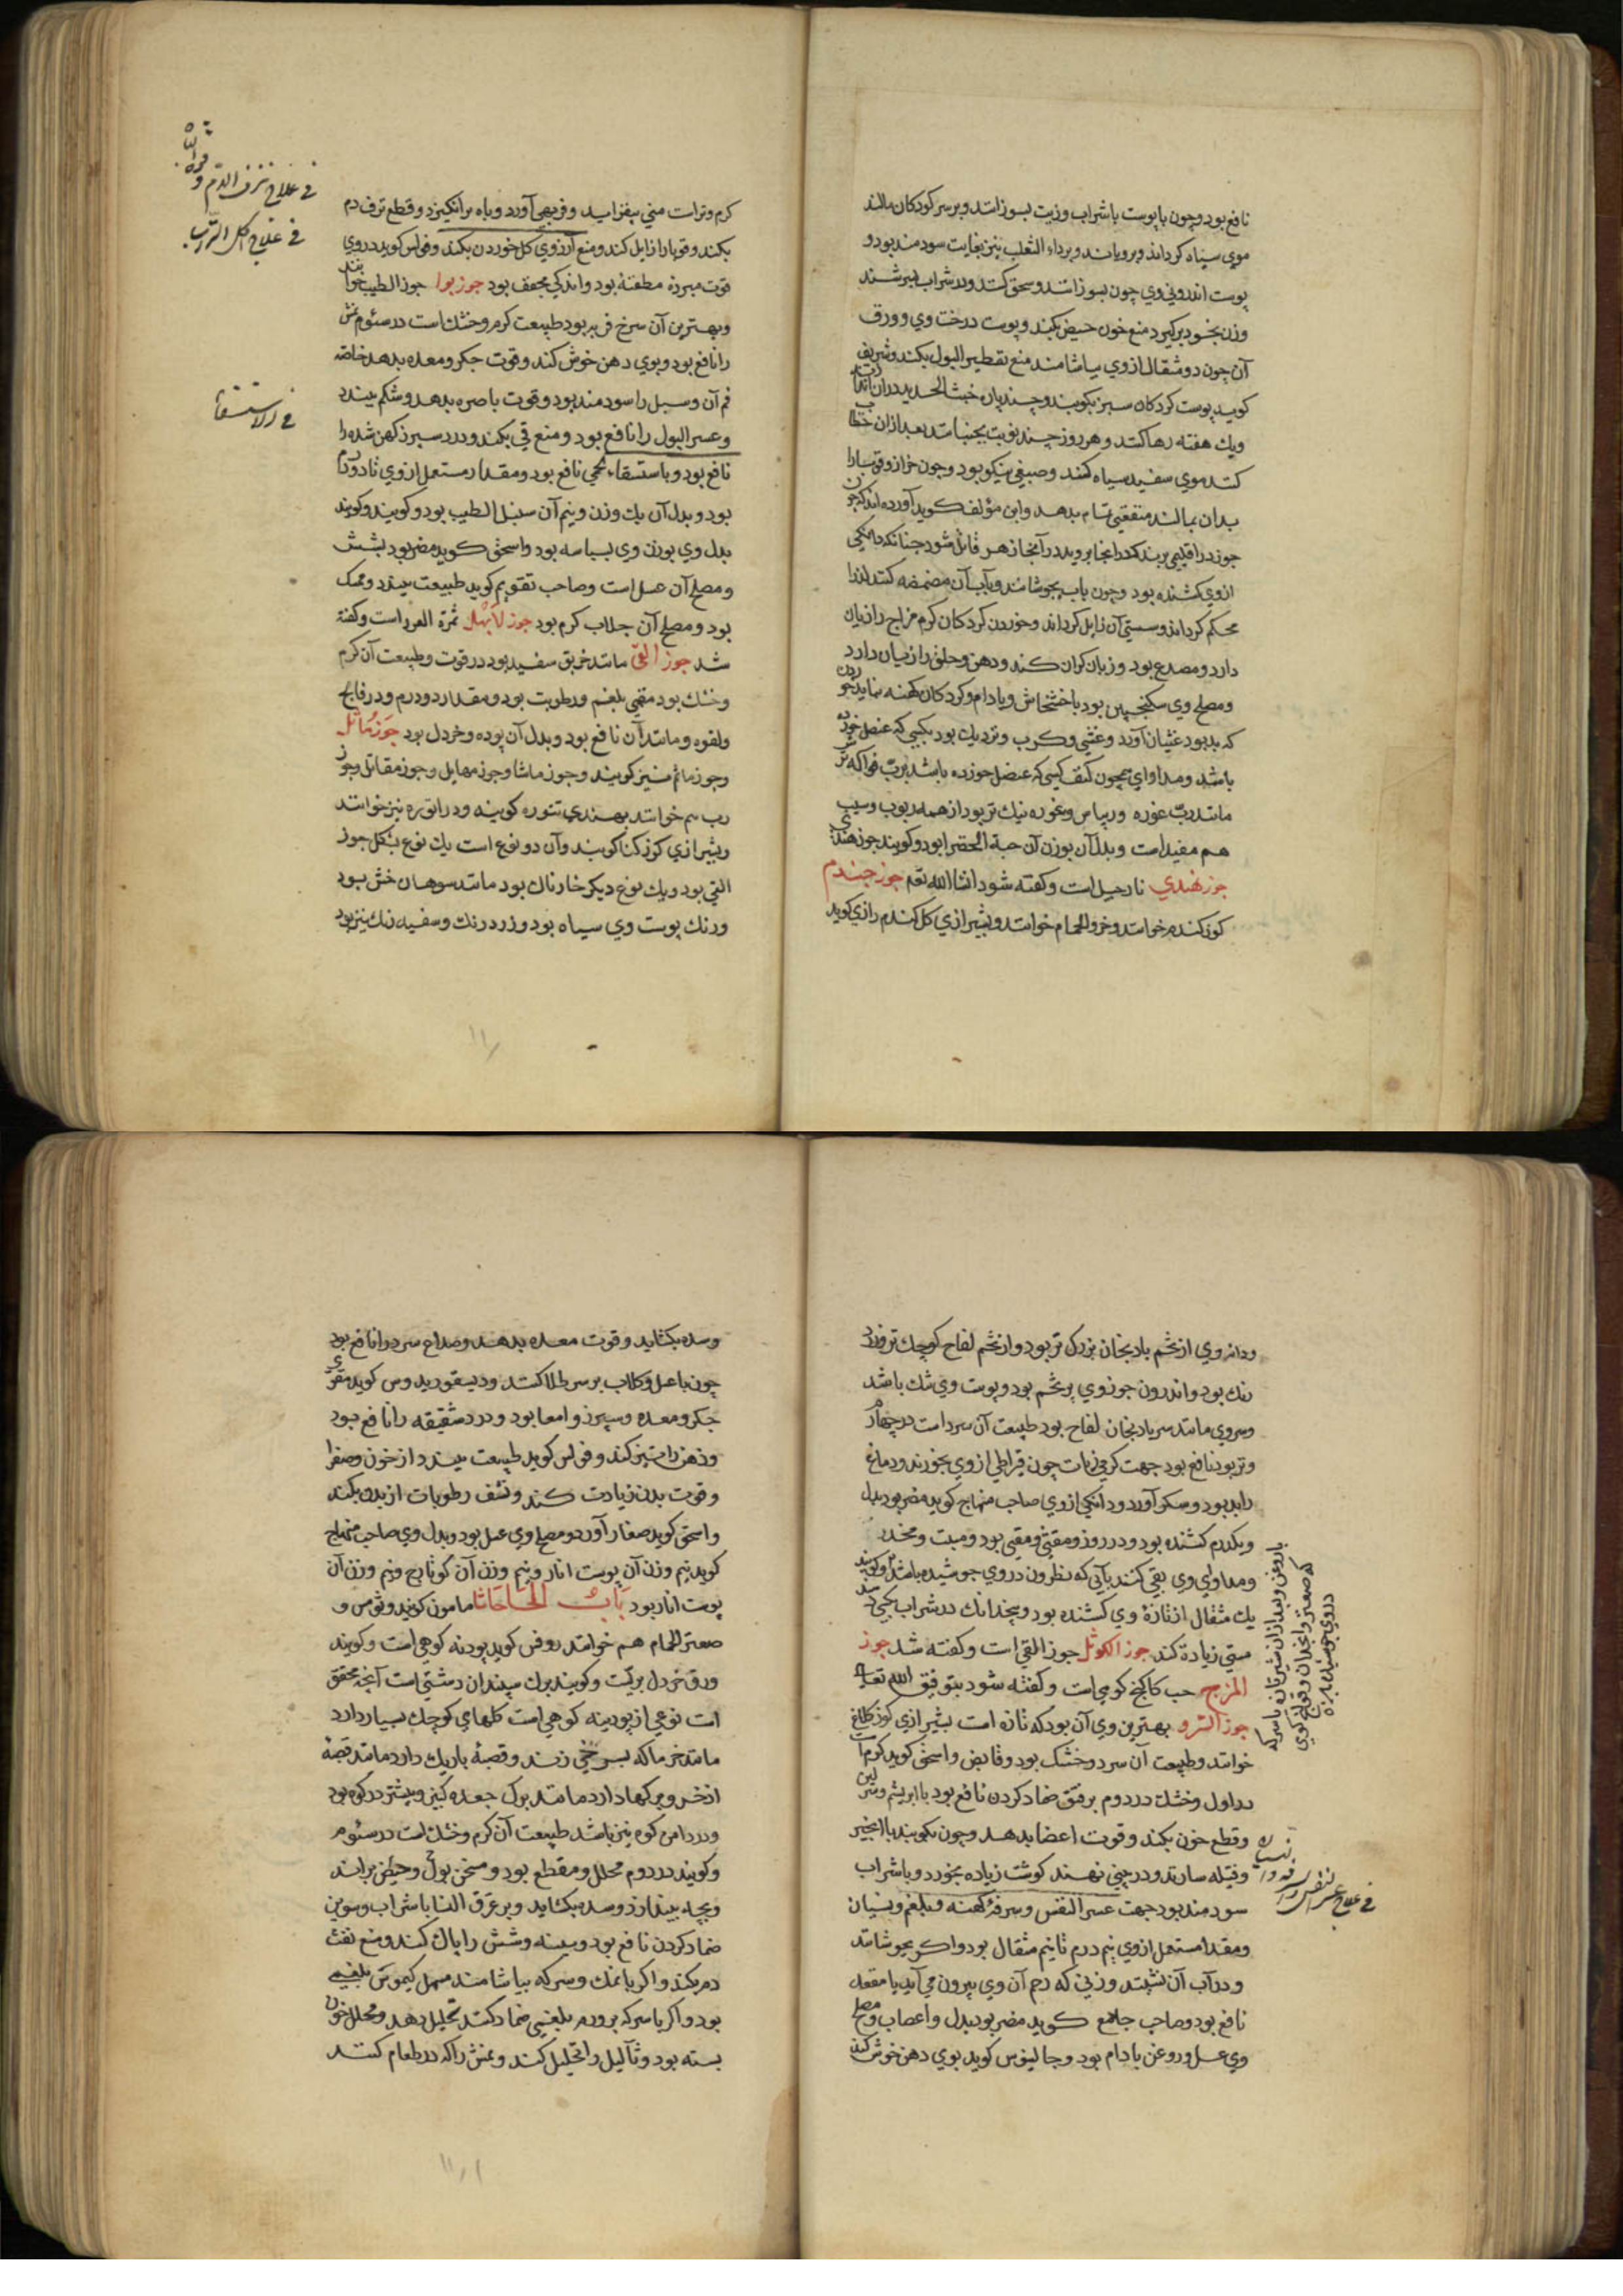 نافع بود و چون با پوست با شراب و زیت بسوزانند و بر سر کودکان مالند
موی سیاه کرداند و برویاند و بر داء الثعلب نیز بغایت سودمند بود و
پوست اندرونی وی چون بسوزانند و سحق کنند و در شراب بسرشند
وزن بخود برکیرد منع خون حیض بکند و پوست درخت وی و ورق
آن چون دو مثقال از وی بیاشامند منع تقطیر البول بکند و شریف
کوید پوست کردکان سبز بکوبند و چند پاره خبث الحدید در ان اندازند
و یک هفته رها کنند و هر روز چند نوبت بجنبانند بعد از ان خضاب
کنند موی سفید سیاه کند و صبغی نیکو بود و چون خراز و قوبا را
بدان بمالند منفعتی تمام بدهد و ابن مؤلف کوید آورده اند که چون
جوز در اقلیمی برند که در انجا بروید در آنجا زهر قاتل شود چنانکه دانکی
از وی کشنده بود و چون باب بجوشانند و بآب آن مضمضه کنند لثه را
محکم کرداند و سستی آن زایل کرداند و خوردن کردکان کرم مزاج را زیان
دارد و مصدع بود و زبان کران کند و دهن و حلق را زیان دارد
و مصلح وی سکنجبین بود با خشخاش و بادام و کردکان کهنه نباید خوردن
که بد بود غثیان آورد و غشی و کرب و نزدیک بود بکسی که عنصل خورده
باشد و مداوای همچون کنند کسی که عنصل خورده باشد بربّ فواکه ترش
مانند ربّ غوره و ریباس و غوره نیک تر بود از همه ربوب و سیب
هم مفید است و بدل آن بوزن آن حبة الخضرا بود و کویند جوز هندی
جوز هندی نارجیل است و کفته شود انشا الله تعم جوز جندم
کوز کندم خوانند و خرؤ الحمام خوانند و بشیرازی کل کندم رازی کوید
کرم و تر است منی بیفزاید و فربهی آورد و باه برانکیزد و قطع نزف دم
بکند و قوبا را زایل کند و منع آرزوی کل خوردن بکند و فولس کوید در وی
قوت مبرده مطفئه بود و اندکی مجفف بود جوز بوا جوز الطیب خوانند
و بهترین آن سرخ فربه بود طبیعت کرم و خشک است در سئوم نمش
را نافع بود و بوی دهن خوش کند و قوت جکر و معده بدهد خاصه
فم آن و سبل را سودمند بود و قوت باصره بدهد و شکم ببندد
و عسر البول را نافع بود و منع قی بکند و درد سپرز کهن شده را
نافع بود و باستسقاء لحمی نافع بود و مقدار مستعمل از وی تا دو درم
بود و بدل آن یک وزن و نیم آن سنبل الطیب بود و کویند و کویند
بدل وی بوزن وی بسباسه بود و اسحق کوید مضر بود بشش
و مصلح آن عسل است و صاحب تقویم کوید طبیعت ببندد و ممسک
بود و مصلح آن جلاب کرم بود جوز الابهل ثمرة العرعر است و کفته
شد جوز القی مانند خربق سفید بود در قوت و طبیعت آن کرم
و خشک بود مقیی بلغم و رطوبت بود و مقدار دو درم و در فالج
و لقوه و مانند آن نافع بود و بدل آن بوره و خردل بود جوز ماثل
و جوز ماثم نیز کویند و جوز ماثا و جوز مهاثل و جوز مقاتل و جوز
رب هم خوانند بهندی تتوره کویند و داتوره نیز خوانند
و بشیرازی کوز کنا کویند و آن دو نوع است یک نوع بشکل جوز
القی بود و یک نوع دیکر خارناک بود مانند سوهان خشن بود
و رنک پوست وی سیاه بود و زرد رنک و سفید رنک نیز بود
فی علاج نزف الدم و قوه الباه
فی علاج اکل التراب
فی الاستسقاء
و دانه وی از تخم بادنجان بزرک تر بود و از تخم لفاح کوچک تر و زرد
رنک بود و اندرون جوز وی پر تخم بود و پوست وی تنک باشد
و سر وی مانند سر بادنجان لفاح بود طبیعت آن سرد است در چهارم
و تر بود نافع بود جهت کرمی زیات چون قیراطی از وی بخورند و دماغ
را بد بود و سکر آورد و دانکی از وی صاحب منهاج کوید مضر بود بدل
و یکدرم کشنده بود و در روز و مقثی و مقیی بود و مسبت و مخدر
و مداوای وی بقی کنند بآبی که نظرون در وی جوشیده باشد و کویند
یک مثقال از تازه وی کشنده بود و بیخ دانک در شراب بکسی دهند
مستی زیادة کند جوز الکوثل جوز القی است و کفته شد جوز
المزج حب کاکنج کوهی است و کفته شود بتوفیق الله تعالی
جوز السرو بهترین وی آن بود که تازه است بشیرازی کوز کلاغ
خوانند و طبیعت آن سرد و خشک بود و قابض و اسحق کوید کرم است
در اول و خشک در دوم بر فتق ضماد کردن نافع بود با ابریشم و سرین
و قطع خون بکند و قوت اعضا بدهد و چون بکوبند با انجیر
و فتیله سازند و در بینی نهند کوشت زیاده بخورد و با شراب
سودمند بود جهت عسر النفس و سرفه کهنه و بلغم و نسیان
و مقدار مستعمل از وی نیم درم تا نیم مثقال بود و اکر بجوشانند
و در آب آن نشینند و زنی که رحم آن وی بیرون می آید یا مقعد
نافع بود و صاحب جامع کوید مضر بود بدل و اعصاب و مصلح
وی عسل و روغن بادام بود و جالینوس کوید بوی دهن خوش کند
با روغن و بعد از ان شیر تازه با سرکه
که صعتر و انجدان و قوتنج کوهی
در وی جوشیده باشد
فی علاج عسر النفس و السرفه و النسیان
و سده بکشاید و قوت معده بدهد و صداع سرد را نافع بود
چون با عسل و کلاب بر سر طلا کنند و دیسقوریدوس کوید مقوّی
جکر و معده و سپرز و امعا بود و درد شقیقه را نافع بود
و ذهن را تیز کند و فولس کوید طبیعت ببندد از خون و صفرا
و قوت بدن زیادت کند و نشف رطوبات از بدن بکند
و اسحق کوید صفار آورد و مصلح وی عسل بود و بدل وی صاحب منهاج
کوید نیم وزن آن پوست انار و نیم وزن آن کونابج و نیم وزن آن
پوست انار بود باب الحا حاشا مامون کویند و ثومس و
صعتر الحمام هم خوانند روفس کوید پودنه کوهی است و کویند
ورق خردل بریست و کویند برک سپندان دشتی است آنچه محقق
است نوعی از پودینه کوهی است کلهای کوچک بسیار دارد
مانند خرماکه بسرخی زند و قصبهٔ باریک دارد مانند قصبهٔ
اذخر و برکها دارد مانند برک جعده کبیر و بیشتر در کوه بود
و در دامن کوه نیز باشد طبیعت آن کرم و خشک است در سئوم
و کویند در دوم محلل و مقطع بود و مسخن بول و حیض براند
و بچه بیندازد و سده بکشاید و بر عرق النسا با شراب و سویق
ضماد کردن نافع بود و سینه و شش را پاک کند و منع نفث
دم بکند و اکر با نمک و سرکه بیاشامند مسهل کیموس بلغمی
بود و اکر با سرکه بر ورم بلغمی ضماد کنند تحلیل دهد و محلل خون
بسته بود و ثآلیل را تحلیل کند و عنش را که در طعام کنند